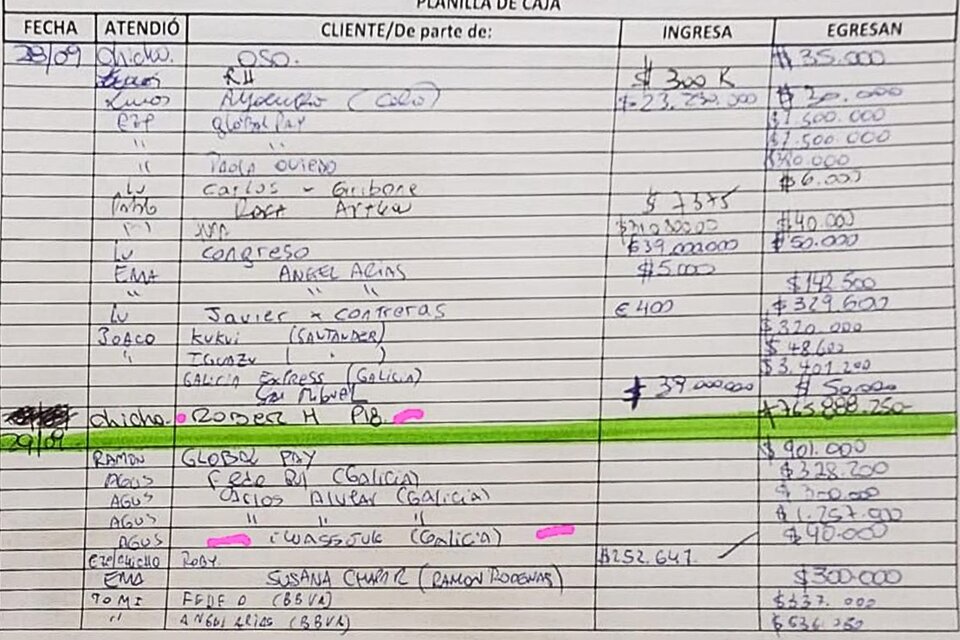 PLANILLA DE CAJA
FECHA ATENDIÓ CLIENTE/De parte de: INGRESA EGRESAN
28/09 chicho. OSO. $ 35.000
RH $ 300 K
(Colo) $ 23.230.000 $ 20.000
eze global PAY $1.500.000
" " $1.500.000
" Paola OVIEDO
Lu Carlos - Gribone $ 6.000
Pablo $ 7375
$40.000
Lu congreso $39.000000 $50.000
EMA ANGEL ARIAS $5.000
" " " $142.500
Lu Javier x contreras € 400 $329.600
JOACO KUKUI (SANTANDER) $320.000
" IGUAZU ( " ) $ 48.600
GALICIA EXPRESS (GALICIA) $3.401.200
San Miguel $ 39 000000 $ 50.000
chicho. ROBER H P18.
29/09
RAMON GLOBAL PAY $ 901.000
AGUS (Galicia) $ 328.200
AGUS Carlos Alvear (Galicia) $ 300.000
AGUS " " "
AGUS (Galicia) $ 90.000
eze/chicho ROBY. $252.647.
EMA SUSANA CHAPAR (RAMON RODENAS) $300.000
TOMI FEDE O (BBVA) $337.000
" ANGEL ARIAS (BBVA)